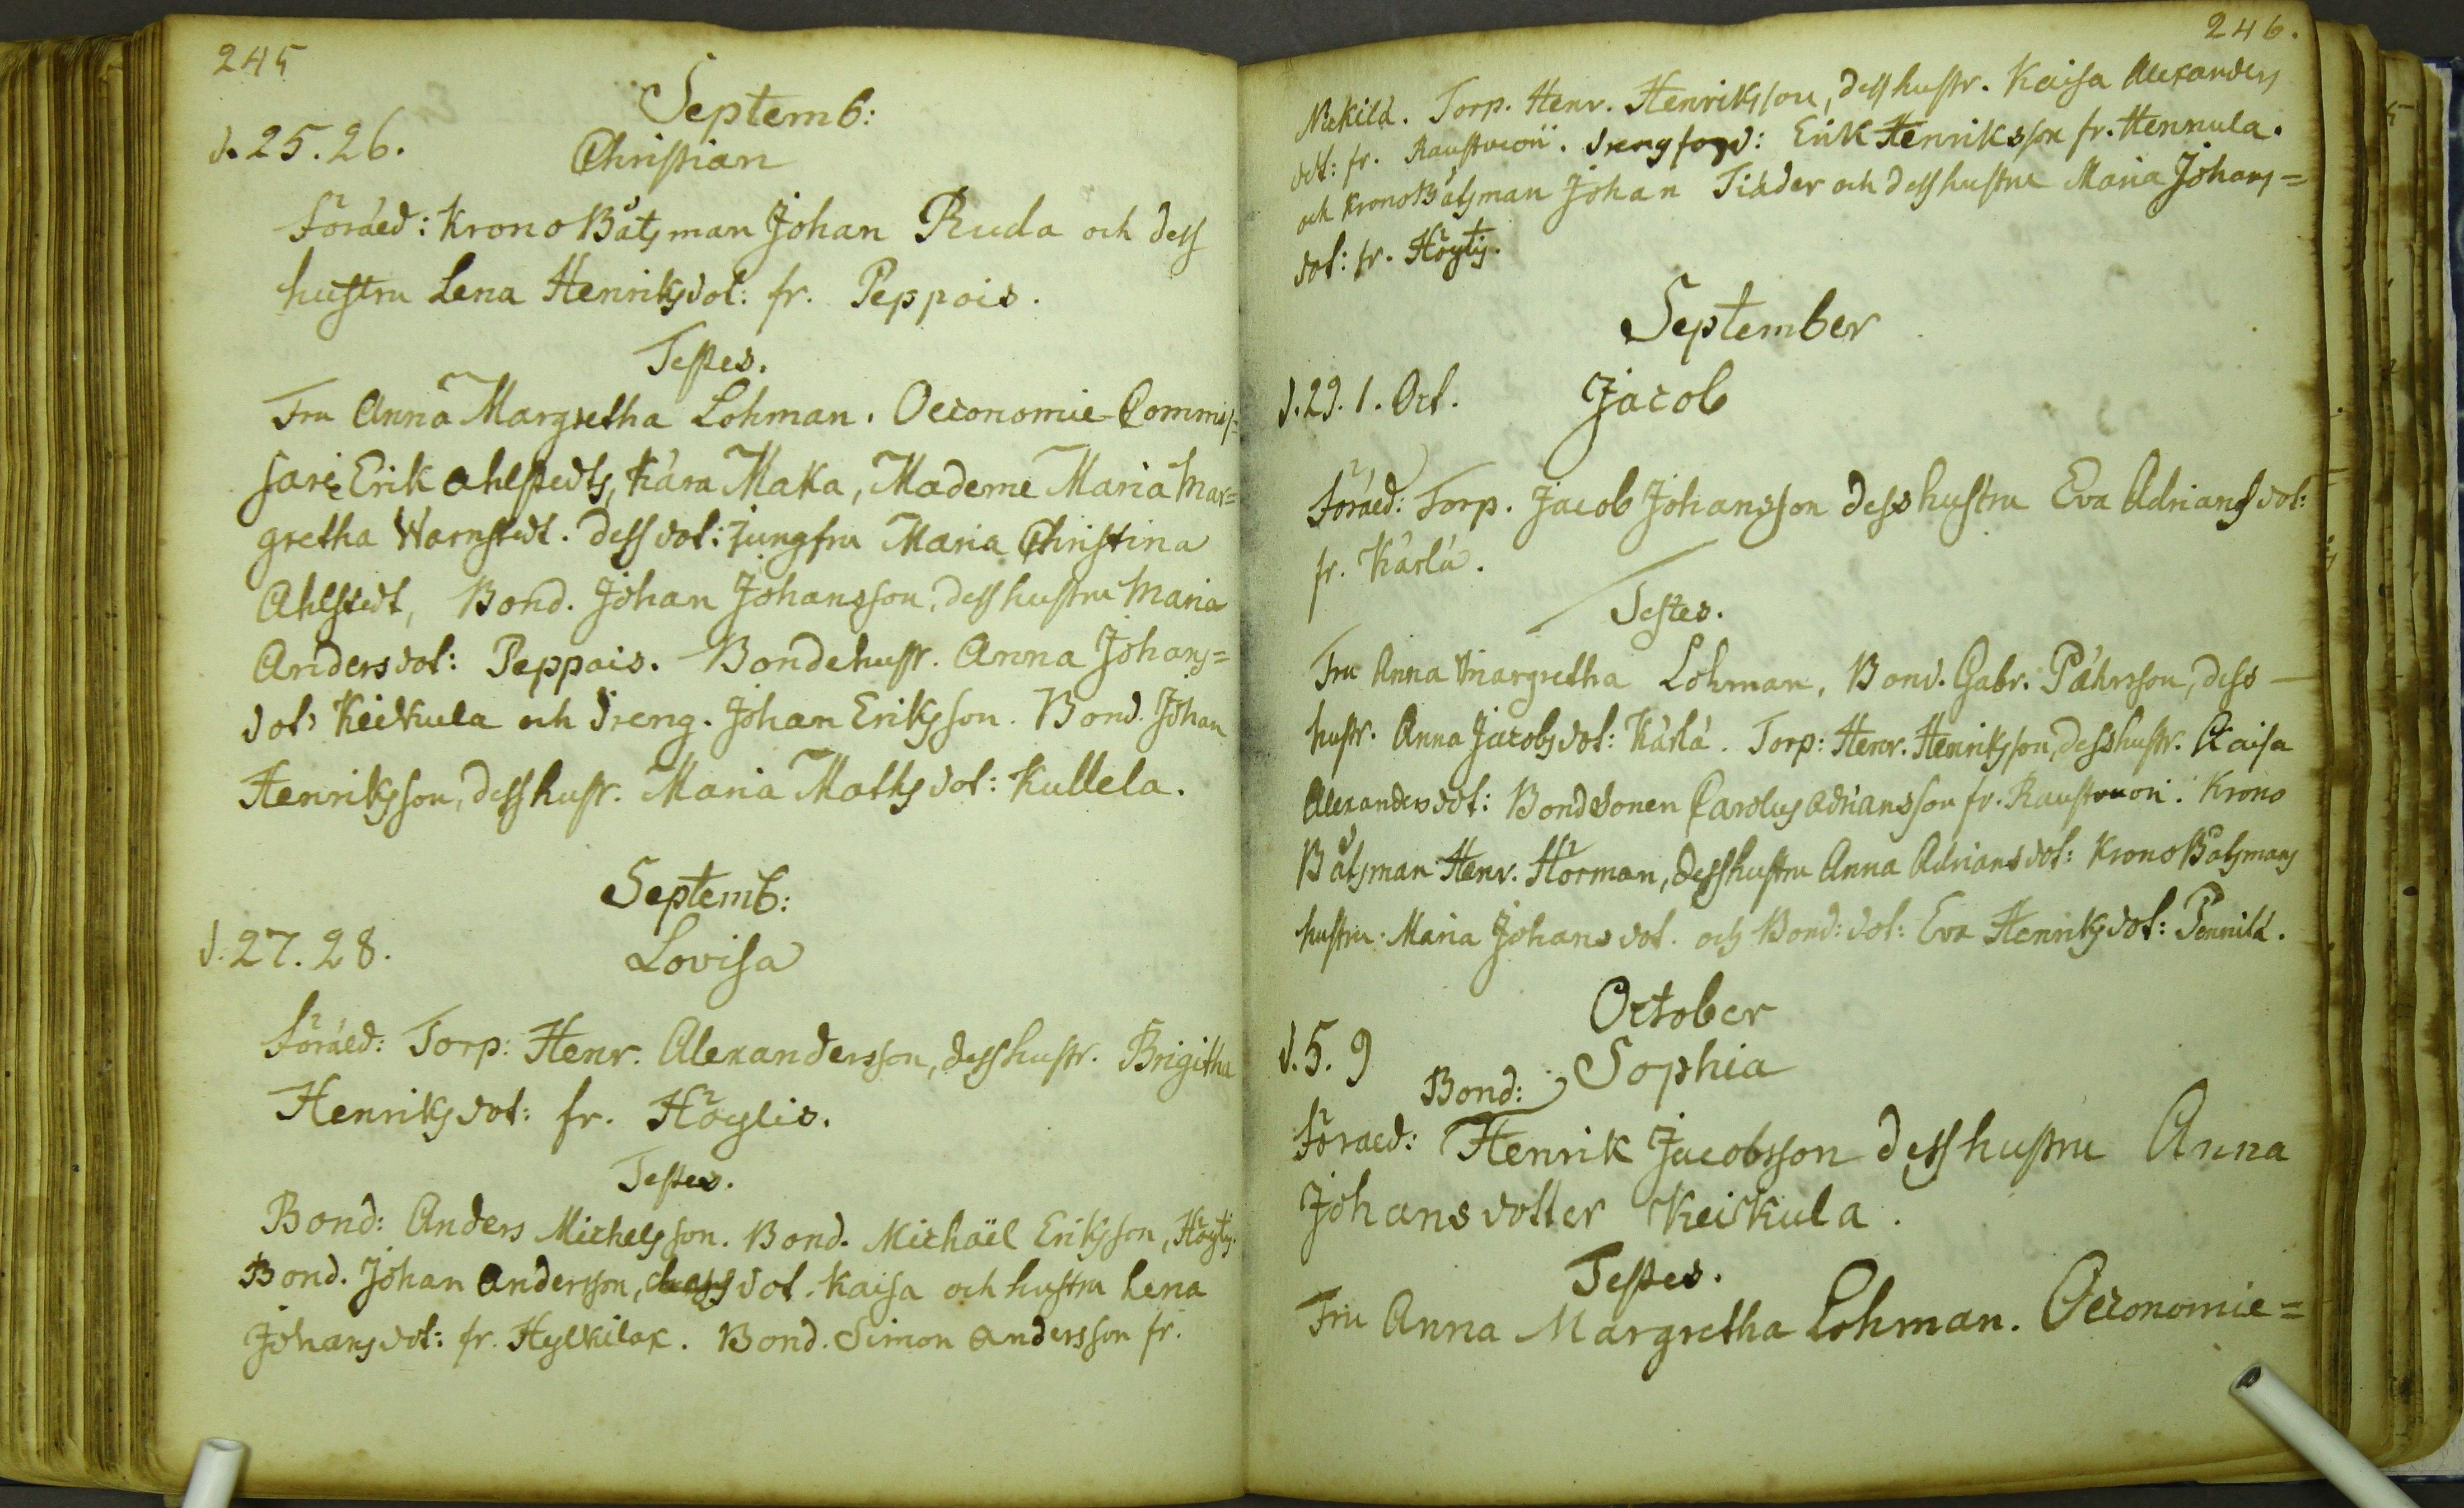 245
Septemb:
d. 25. 26.
Christian
Föräld: Krono Båtsman Johan Ruda och dess
hustru Lena Henriksdot: fr. Peppois.
Testes.
Fru Anna Margretha Lohman. Oeconomie-Commis=
sari Erik Ahlstedts, Kära Maka, Mademe Maria Mar=
gretha Warnstedt. dess dot: jungfru Maria Christina
Ahlstedt, Bond. Johan Johansson, dess hustru Maria
Andersdot: Peppais. Bondehustr. Anna Johans=
dot: Keikkula och dreng. Johan Eriksson. Bond. Johan
Henriksson, dess hustr. Maria Mathsdot: Kullela.
Septemb:
d. 27. 28.
Lovisa
Föräld: Torp: Henr. Alexandersson, dess hustr. Brigitha
Henriksdot: fr. Höylis.
Testes.
Bond: Anders Michelsson. Bond. Michaël Eriksson, Höylis.
Bond. Johan Andersson, dot. Kaisa och hustru Lena
Johansdot: fr. Hylkilax. Bond. Simon Andersson fr.
246.
Nickilä. Torp. Henr. Henriksson, dess hustr. Kaisa Alexanders
dot: fr. Drengfogd: Erik Henriksson fr. Hennula.
och KronoBåtsman Johan Tiäder och dess hustru Maria Johans=
dot: fr. Höylis.
September
d. 29. 1. Oct.
Jacob
Föräld: Torp. Jacob Johansson dess hustru Eva Adriansdot:
fr. Kärlä.
Testes.
Fru Anna Margretha Lohman, Bond. Gabr. Påhrsson, dess
hustr. Anna Jacobsdot: Kärlä. Torp: Henr. Henriksson, dess hustr. Kaisa
Alexandersdot: Bondsonen Carolus Adriansson fr. Krono
Båtsman Henr. Horman, dess hustru Anna Adriansdot: KronoBåtsmans
hustru Maria Johansdot. och Bond: dot: Eva Henriksdot: Pennilä.
October
d. 5. 9
Sophia
Bond:
Föräld: Henrik Jacobsson dess hustru Anna
Johansdotter Keikkula.
Testes.
Fru Anna Margretha Lohman. Oeconomie=